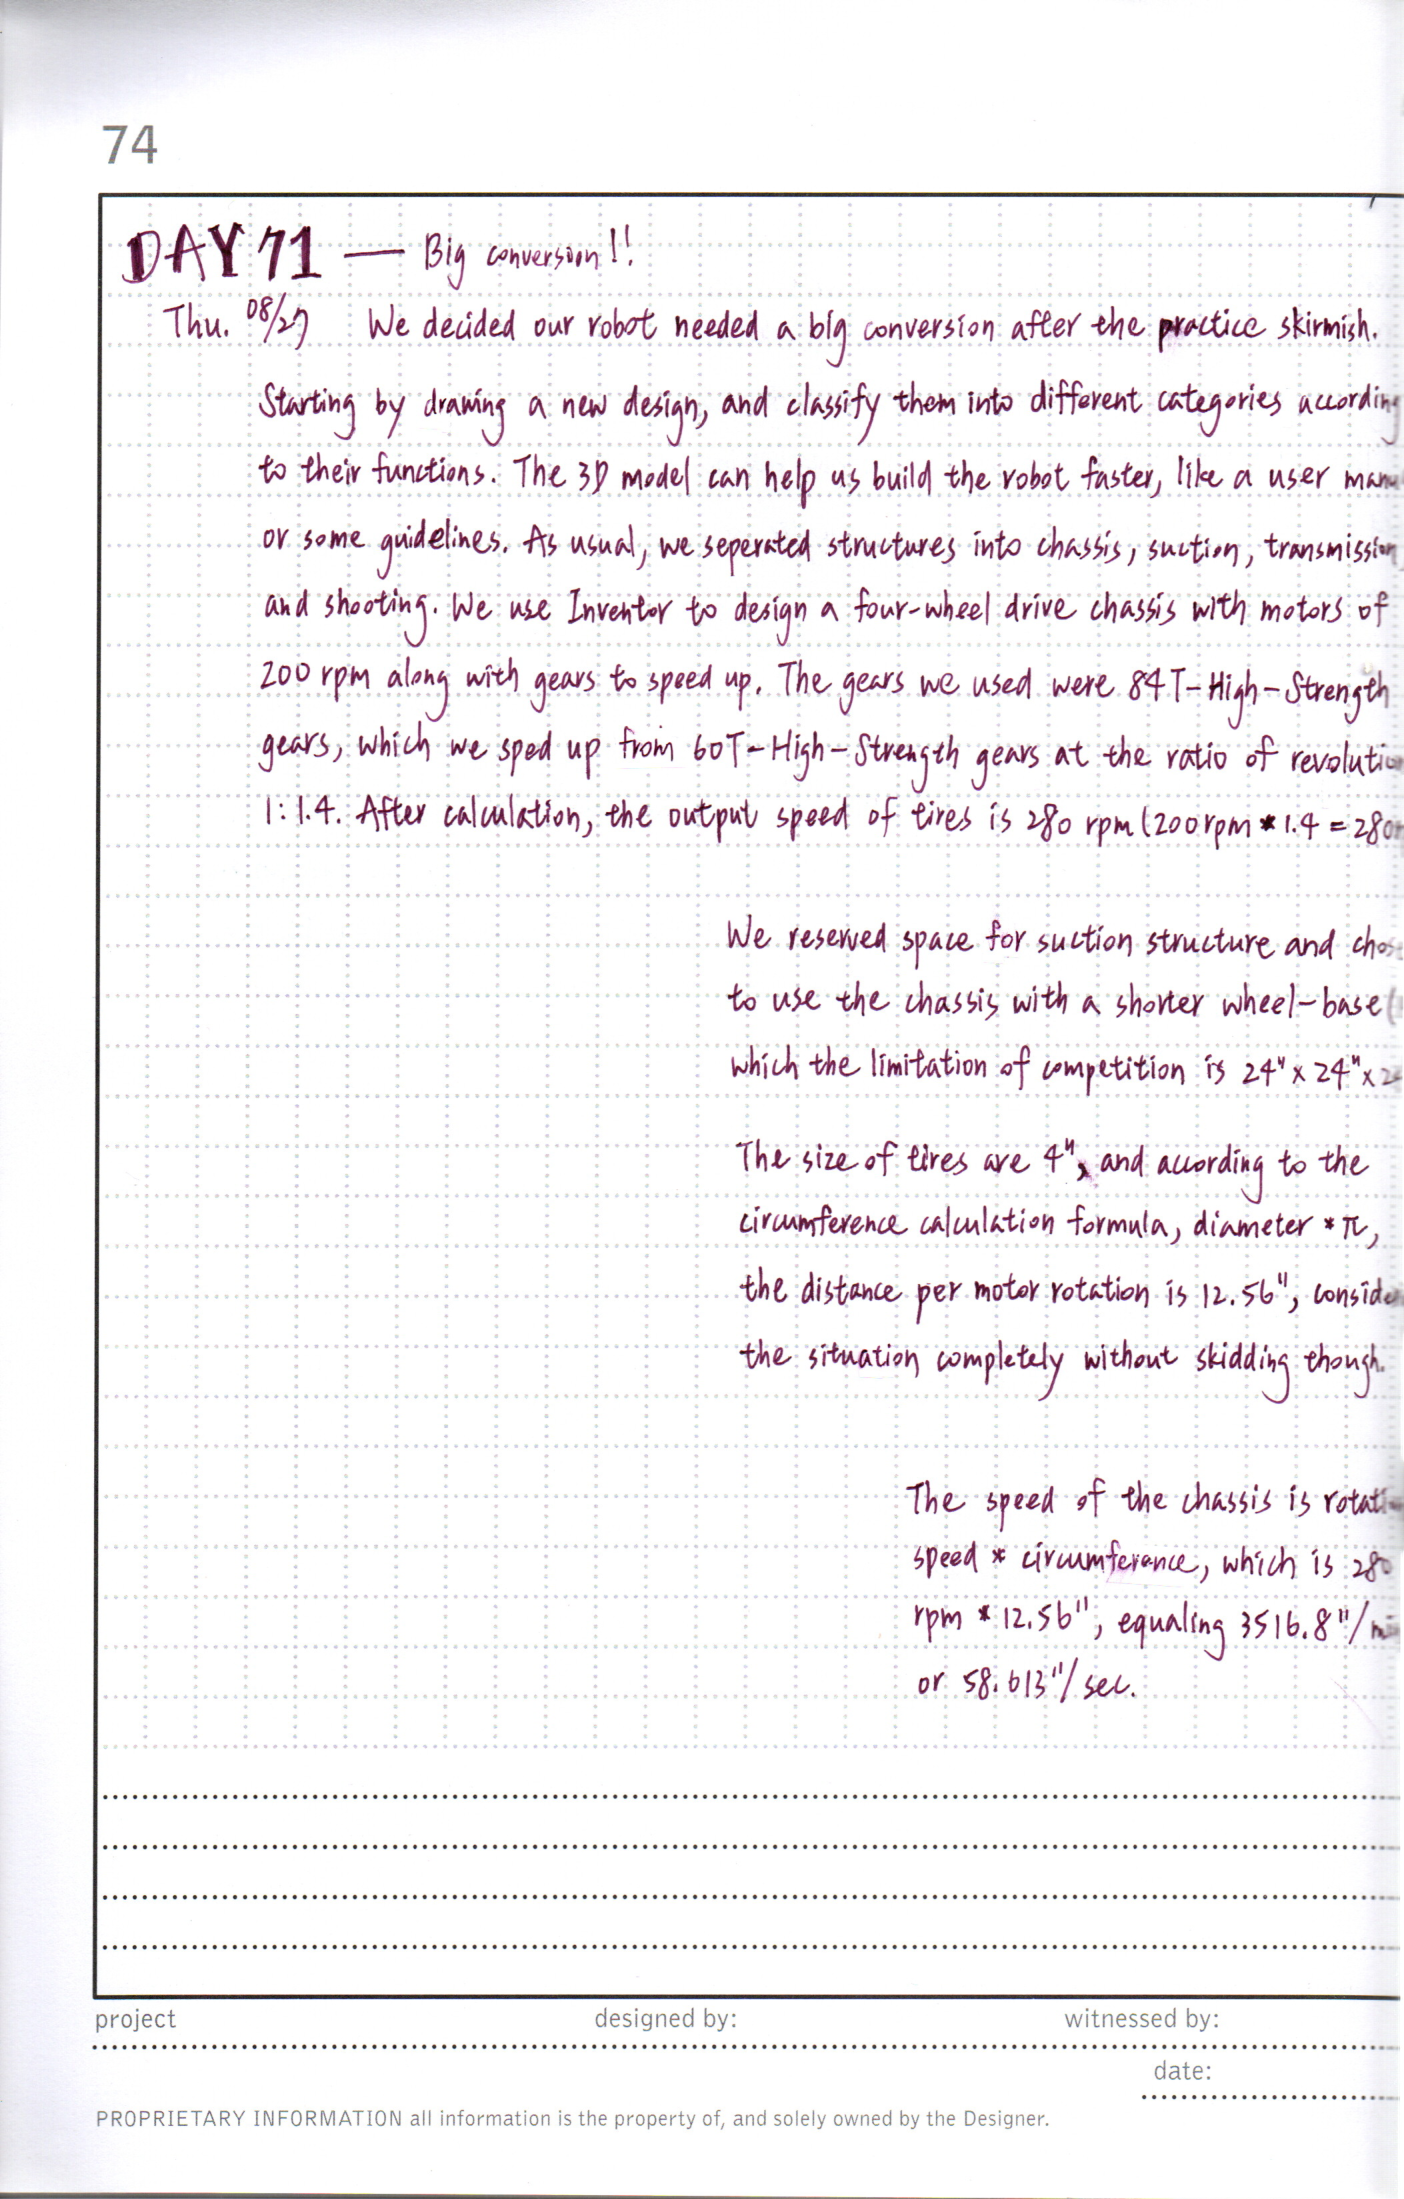 74
DAY 71 — Big conversion!!
Thu. 08/27 We decided our robot needed a big conversion after the practice skirmish.
Starting by drawing a new design, and classify them into different categories according
to their functions. The 3D model can help us build the robot faster, like a user
or some guidelines. As usual, we seperated structures into chassis, suction, transmission,
and shooting. We use Inventor to design a four-wheel drive chassis with motors of
200 rpm along with gears to speed up. The gears we used were 84T-High-Strength
gears, which we sped up from 60T-High-Strength gears at the ratio of
1:1.4. After calculation, the output speed of tires is 280 rpm (200rpm * 1.4 =
We reserved space for suction structure and
to use the chassis with a shorter wheel-base
which the limitation of competition is 24" x 24" x
The size of tires are 4", and according to the
circumference calculation formula, diameter * π,
the distance per motor rotation is 12.56",
the situation completely without skidding though.
The speed of the chassis is
speed * circumference, which is 280
rpm * 12.56", equaling 3516.8"/
or 58.613"/sec.
project designed by: witnessed by:
date:
PROPRIETARY INFORMATION all information is the property of, and solely owned by the Designer.